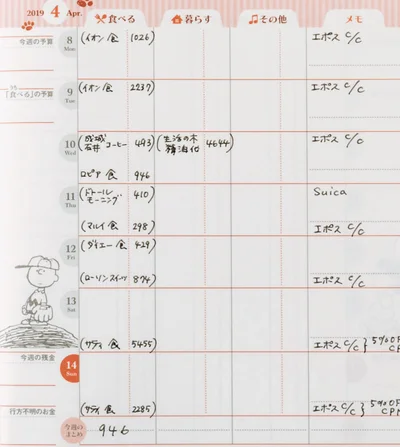 2019 4 Apr. 食べる 暮らす その他 メモ
今週の予算
8 Mon (イオン 食 1026) エポス C/C
「食べる」の予算
9 Tue (イオン 食 2237) エポス C/C
10 Wed (成城石井 コーヒー 493) (生活の木 精油他 4644) エポス C/C
ロピア 食 946
11 Thu (ドトール モーニング 410) Suica
(マルイ 食 298) エポス C/C
12 Fri (ダイエー 食 429)
(ローソン スイーツ 874) エポス C/C
13 Sat
(サティ 食 5455) エポス C/C } 5%OFF
今週の残金
14 Sun
行方不明のお金
(サティ 食 2285) エポス C/C } 5%OFF
今週のまとめ 946